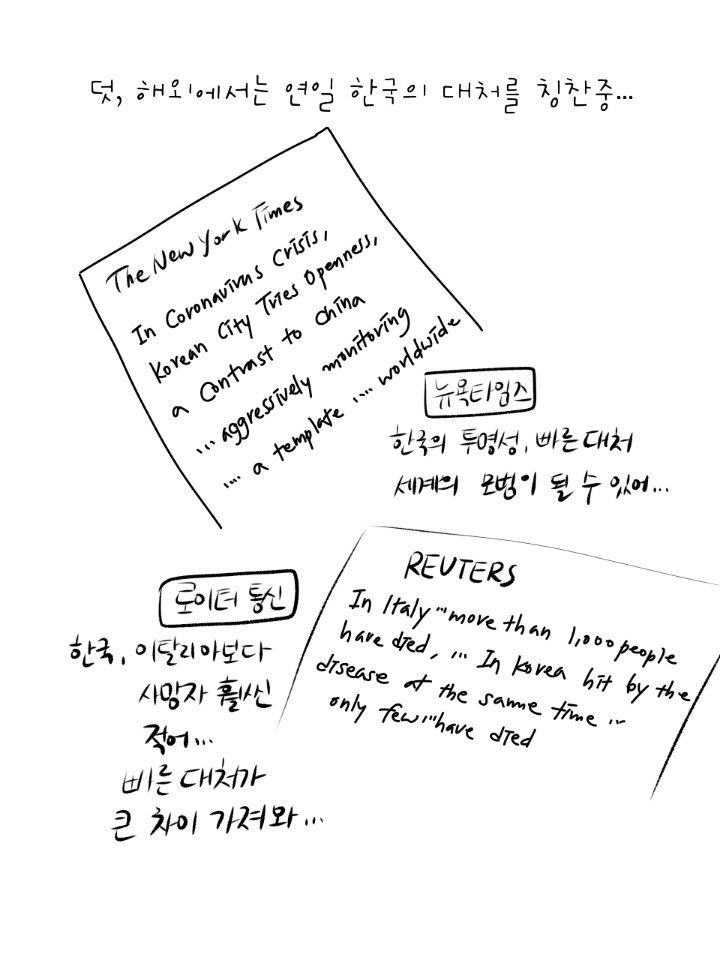 덧, 해외에서는 연일 한국의 대처를 칭찬중...
The New York Times
In Coronavirus Crisis,
Korean City Tries Openness,
a Contrast to China
... aggressively monitoring
.... a template .... worldwide
뉴욕타임즈
한국의 투명성, 빠른 대처
세계의 모범이 될 수 있어...
REUTERS
In Italy ... more than 1,000 people
have died, ... In Korea hit by the
disease at the same time ...
only few ... have died
로이터 통신
한국, 이탈리아보다
사망자 훨씬
적어...
빠른 대처가
큰 차이 가져와...